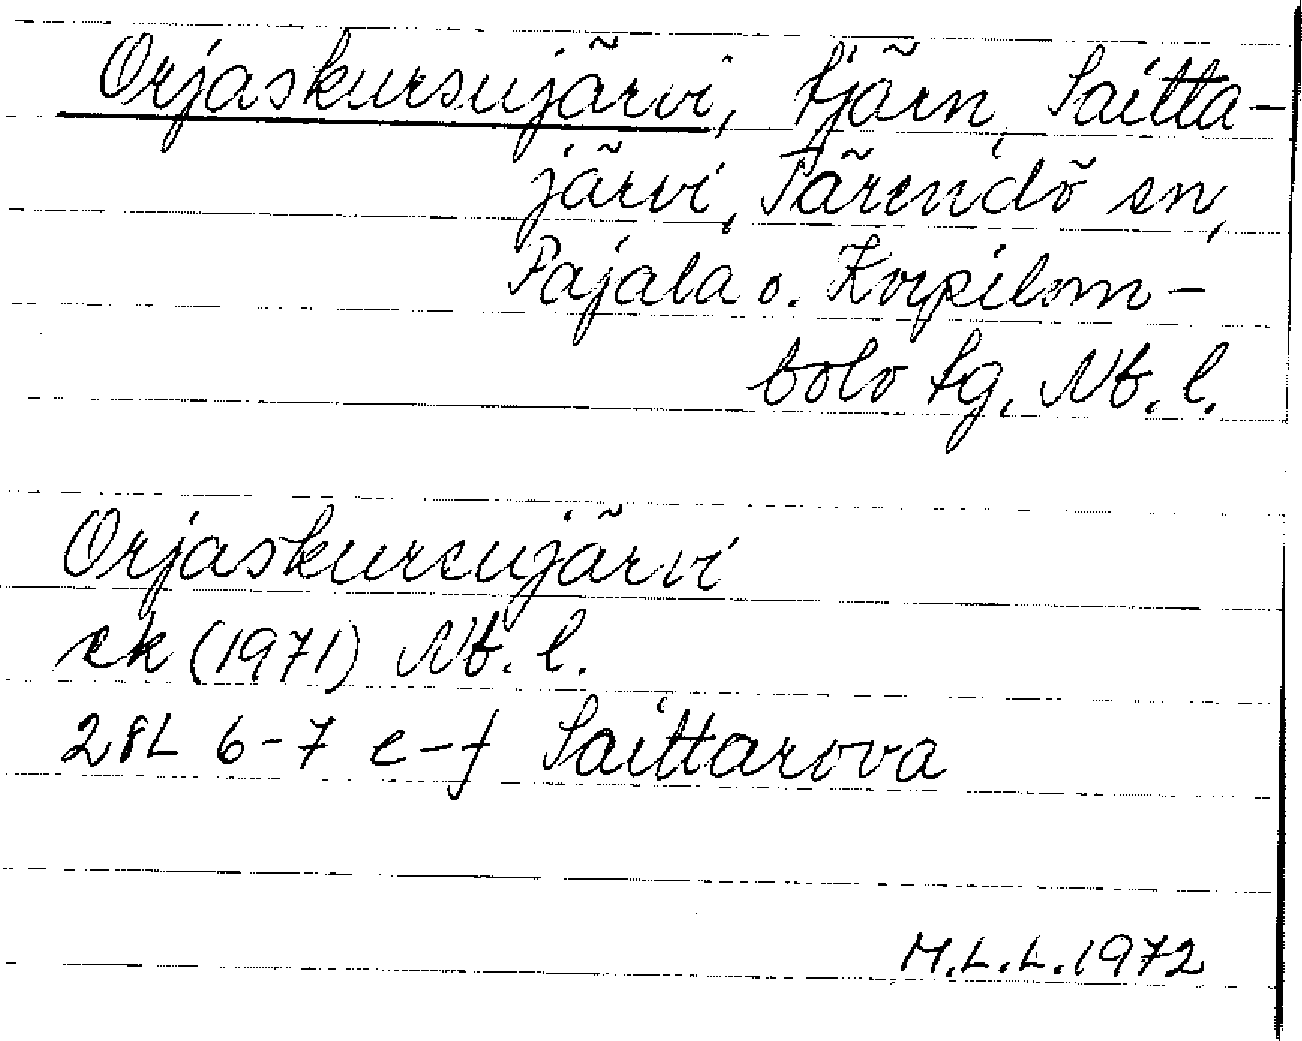 Orjaskursujärvi, tjärn, Saitta-
järvi, Tärendö sn,
Pajala o. Korpilom-
bolo tg, Nb. l.
Orjaskursujärvi
ek (1971) Nb. l.
28L 6-7 e-f Saittarova
M.L.L. 1972